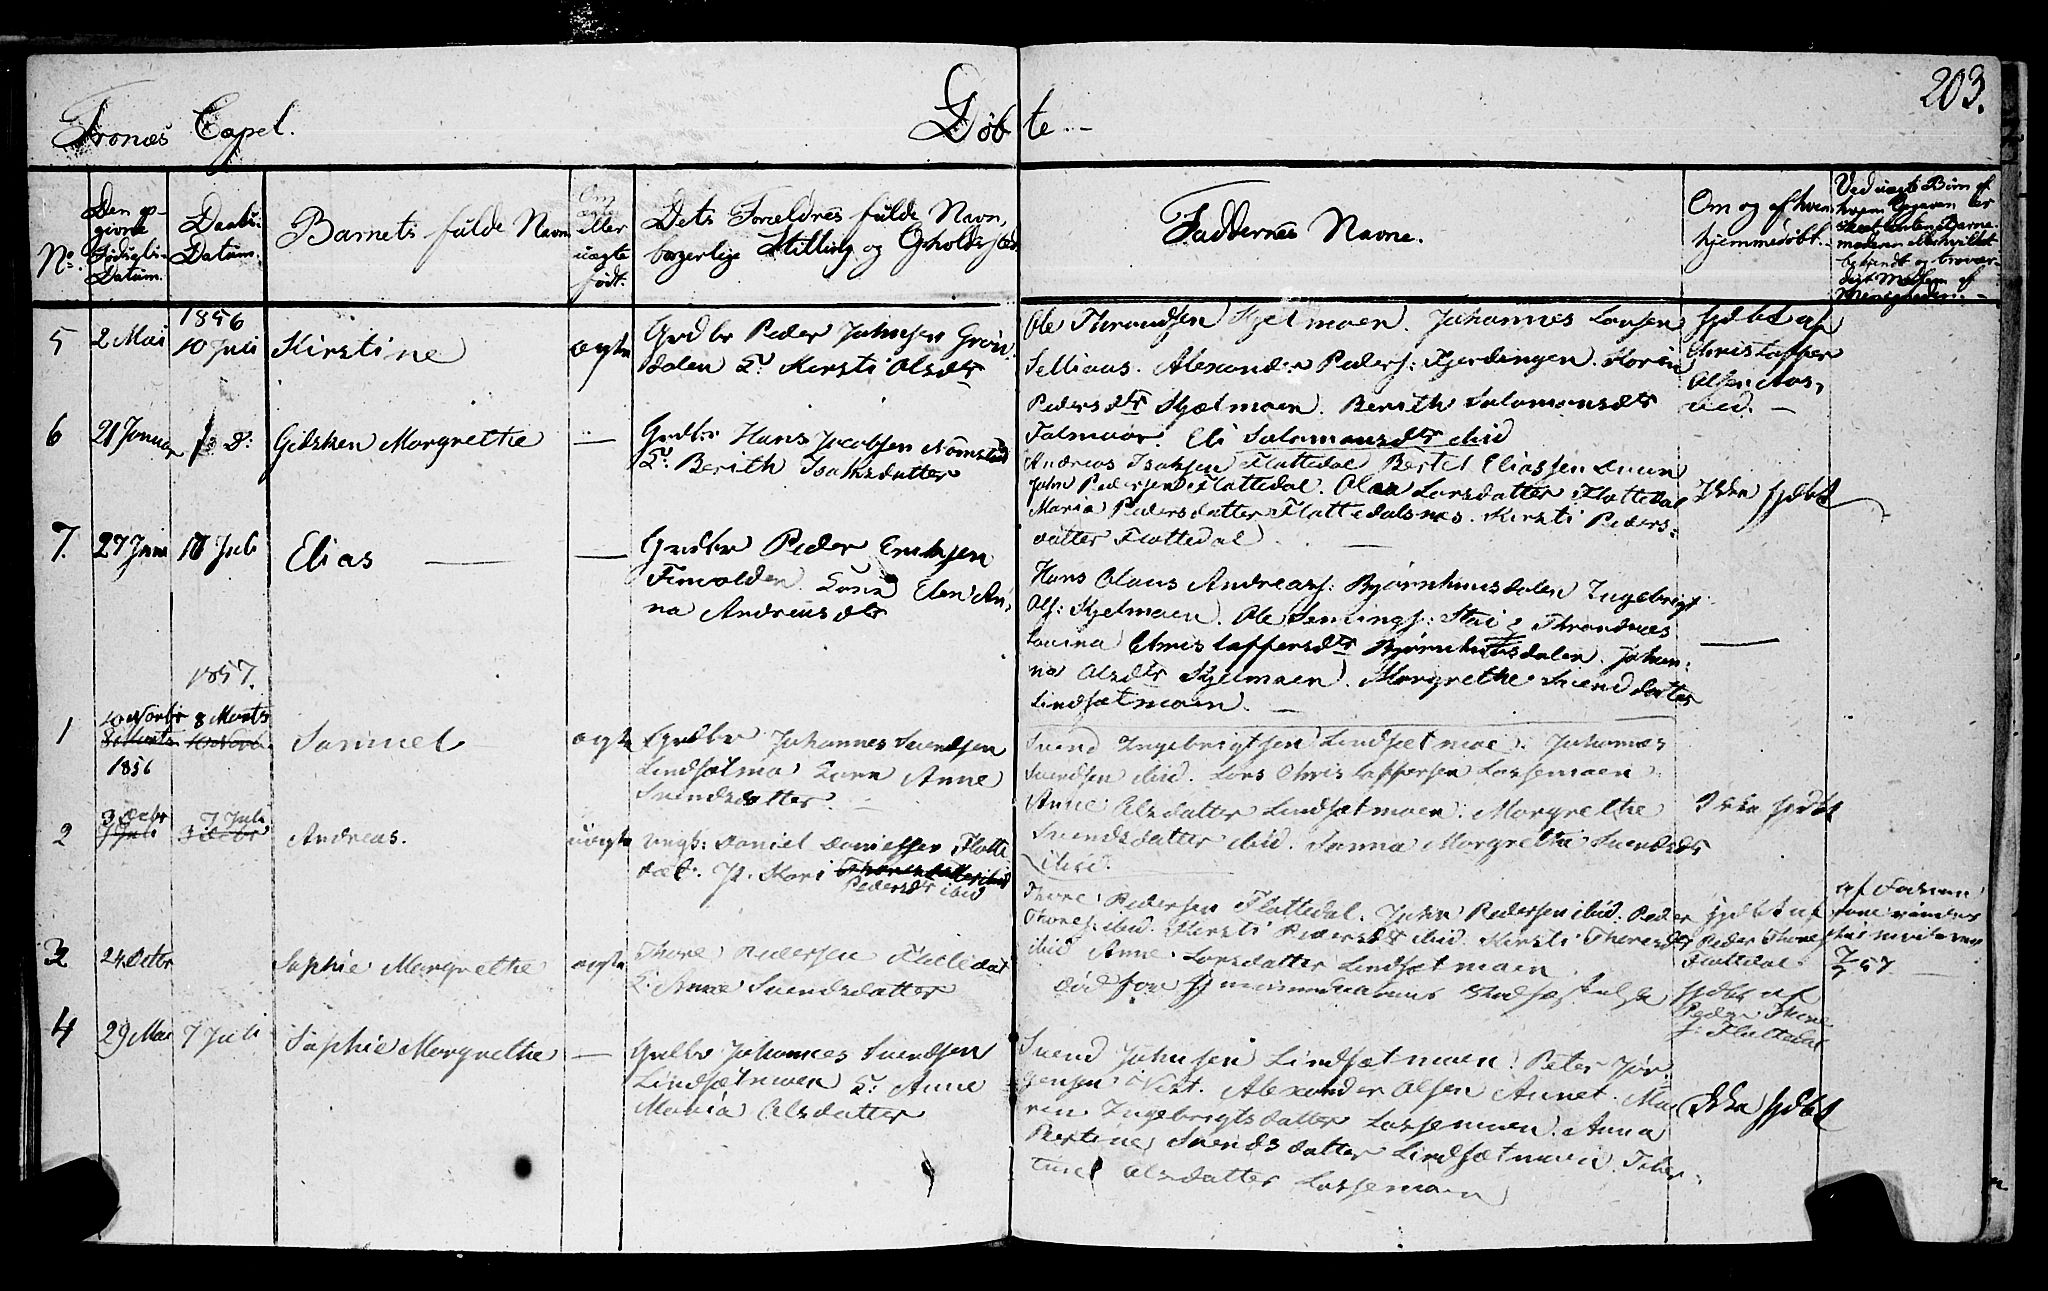 203.
Tronæs Capel. Døbte.
No.
Den opgivne Fødsels-Datum.
Daabs-Datum.
Barnets fulde Navn
Om ægte eller uægte født.
Dets Forældres fulde Navn,
borgerlige Stilling og Opholdssted
Faddernes Navne.
Om og af hvem
hjemmedøbt.
Ved uægte Børn af
5 2 Mai 1856 10 Juli Kirstine ægte
Grdbr Peder Johnsen Grøn-
dalen K. Kirsti Olsdtr
Ole Throndsen Skjelmoen. Johannes Larsen
Selliaas. Alexander Peders: Gjerdingen. Karen
Pedersdtr Skjelmoen. Berith Salomonsdtr
Eli Salomonsdtr ibid
Hjdbt af
Christopher
Olsen Aas-
ved. —
6 21 Januar d: Gidsken Margrethe —
Grdbr Hans Jacobsen
K. Berith Isaksdatter
Andreas Isaksen Flottedal Bertel Eliassen Duun
John Pedersen Flottedal. Larsdatter Flottedal
Maria Pedersdatter Flottedalsnes. Kirsti Peders-
datter Flottedal
Ikke hjdbt
7. 27 Juni 10 Juli Elias —
Grdbr Peder Eriksen
Finvolden. Kone Elen An-
na Andreasdtr
Hans Olaus Andreas: Bjørnhuusdalen Ingebrigt
Ols: Skjelmoen. Ole Semings:
Christoffersdtr Bjørnhuusdalen. Johan-
na Olsdtr Skjelmoen. Margrethe Svendsdatter
Lindsetmoen. —
1857.
1 10 Novbr 8 Marts
8 Marts 10 Novb.
1856
Samuel ægte
Grdbr Johannes Svendsen
Lindsetmo Kone Anne
Svendsdatter. —
Svend Ingebrigtsen Lindsetmoe. Johannes
Svendsen ibid. Lars Christoffersen Lassemoen
Anne Olsdatter Lindsetmoen. Margrethe
Svendsdatter ibid. Sanna Margrethe Svendsdtr
ibid.
Ikke hjdbt
2 3 Decbr 7 Juli
7 Juli 3 Decbr
Andreas. uægte
Ungk: Daniel Danielsen Flotte-
dal. P. Kari
Pedersdtr ibid
Thore Pedersen Flottedal. John Pedersen ibid. Peder
Thores: ibid. Kirsti Pedersdtr ibid. Kirsti Thoresdtr
ibid Anne Larsdatter Lindsetmoen.
Hjdbt af
Peder Thores
Flottedal.
7/7 57
3 24 Octbr Sophie Margrethe ægte
Thore Pedersen Flottedal
K. Anne Svendsdatter
død før Hjemmedaabens Stadfæstelse
Hjdbt af
Peder Thore
s: Flottedal
4 29 Mai 7 Juli Sophie Margrethe —
Grdbr Johannes Svendsen
Lindsetmoen K. Anne
Maria Olsdatter
Svend Johnsen Lindsetmoen. Peter Jør-
gensen Vixt. Alexander Olsen Aunet. Ma-
ren Ingebrigtsdatter Lassemoen. Anna
Bertine Svendsdatter Lindsetmoen. Tiber-
tine Olsdatter Lassemoen
Ikke hjdbt